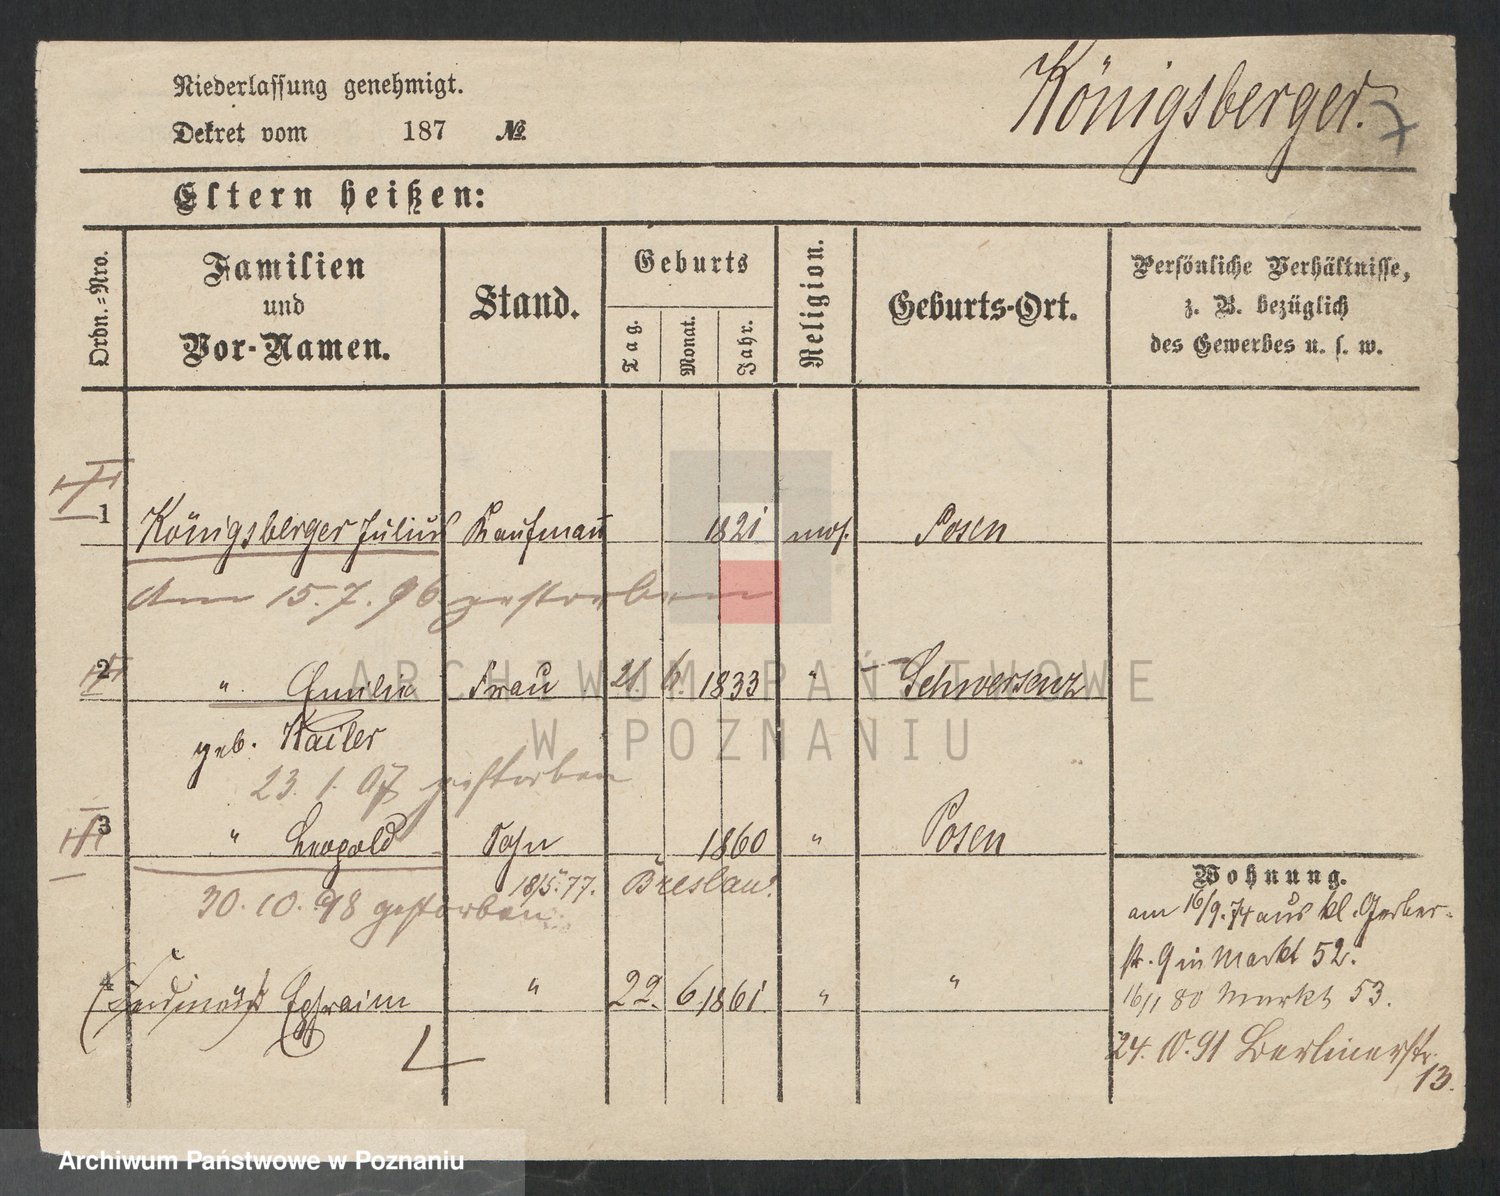 Niederlassung genehmigt.
Königsberger.
Dekret vom 187 №
Eltern heißen:
Ordn.=Nro.
Familien
und
Vor-Namen.
Stand.
Geburts
Tag.
Monat.
Jahr.
Religion.
Geburts-Ort.
Persönliche Verhältnisse,
z. B. bezüglich
des Gewerbes u. s. w.
1 Königsberger Julius Kaufmann 1821 mos. Posen
am 15.7.96 gestorben
2 " Emilie Frau 21. 6. 1833 " Schwersenz
geb. Kailer
23.1.07 gestorben
3 " Leopold Sohn 1860 " Posen
18/5.77. Breslau.
30.10.98 gestorben
4 (Ferdinand) Ephraim " 22. 6. 1861 " "
Wohnung.
am 16/9.74 aus kl. Gerber-
str. 9 in Markt 52.
16/1 80 Markt 53.
24.10.91 Berlinerstr.
13.
ARCHIWUM PAŃSTWOWE
W POZNANIU
Archiwum Państwowe w Poznaniu